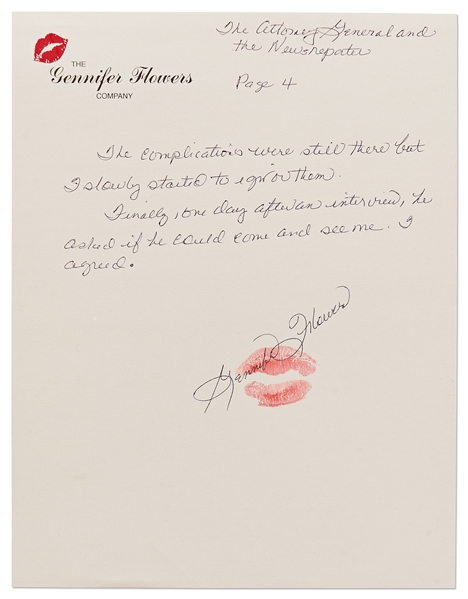 The Attorney General and
the Newsrepater
THE
Gennifer Flowers
COMPANY
Page 4
The complications were still there but
I slowly started to ignor them.
Finally, one day after an interview, he
asked if he could come and see me. I
agreed.
Gennifer Flowers